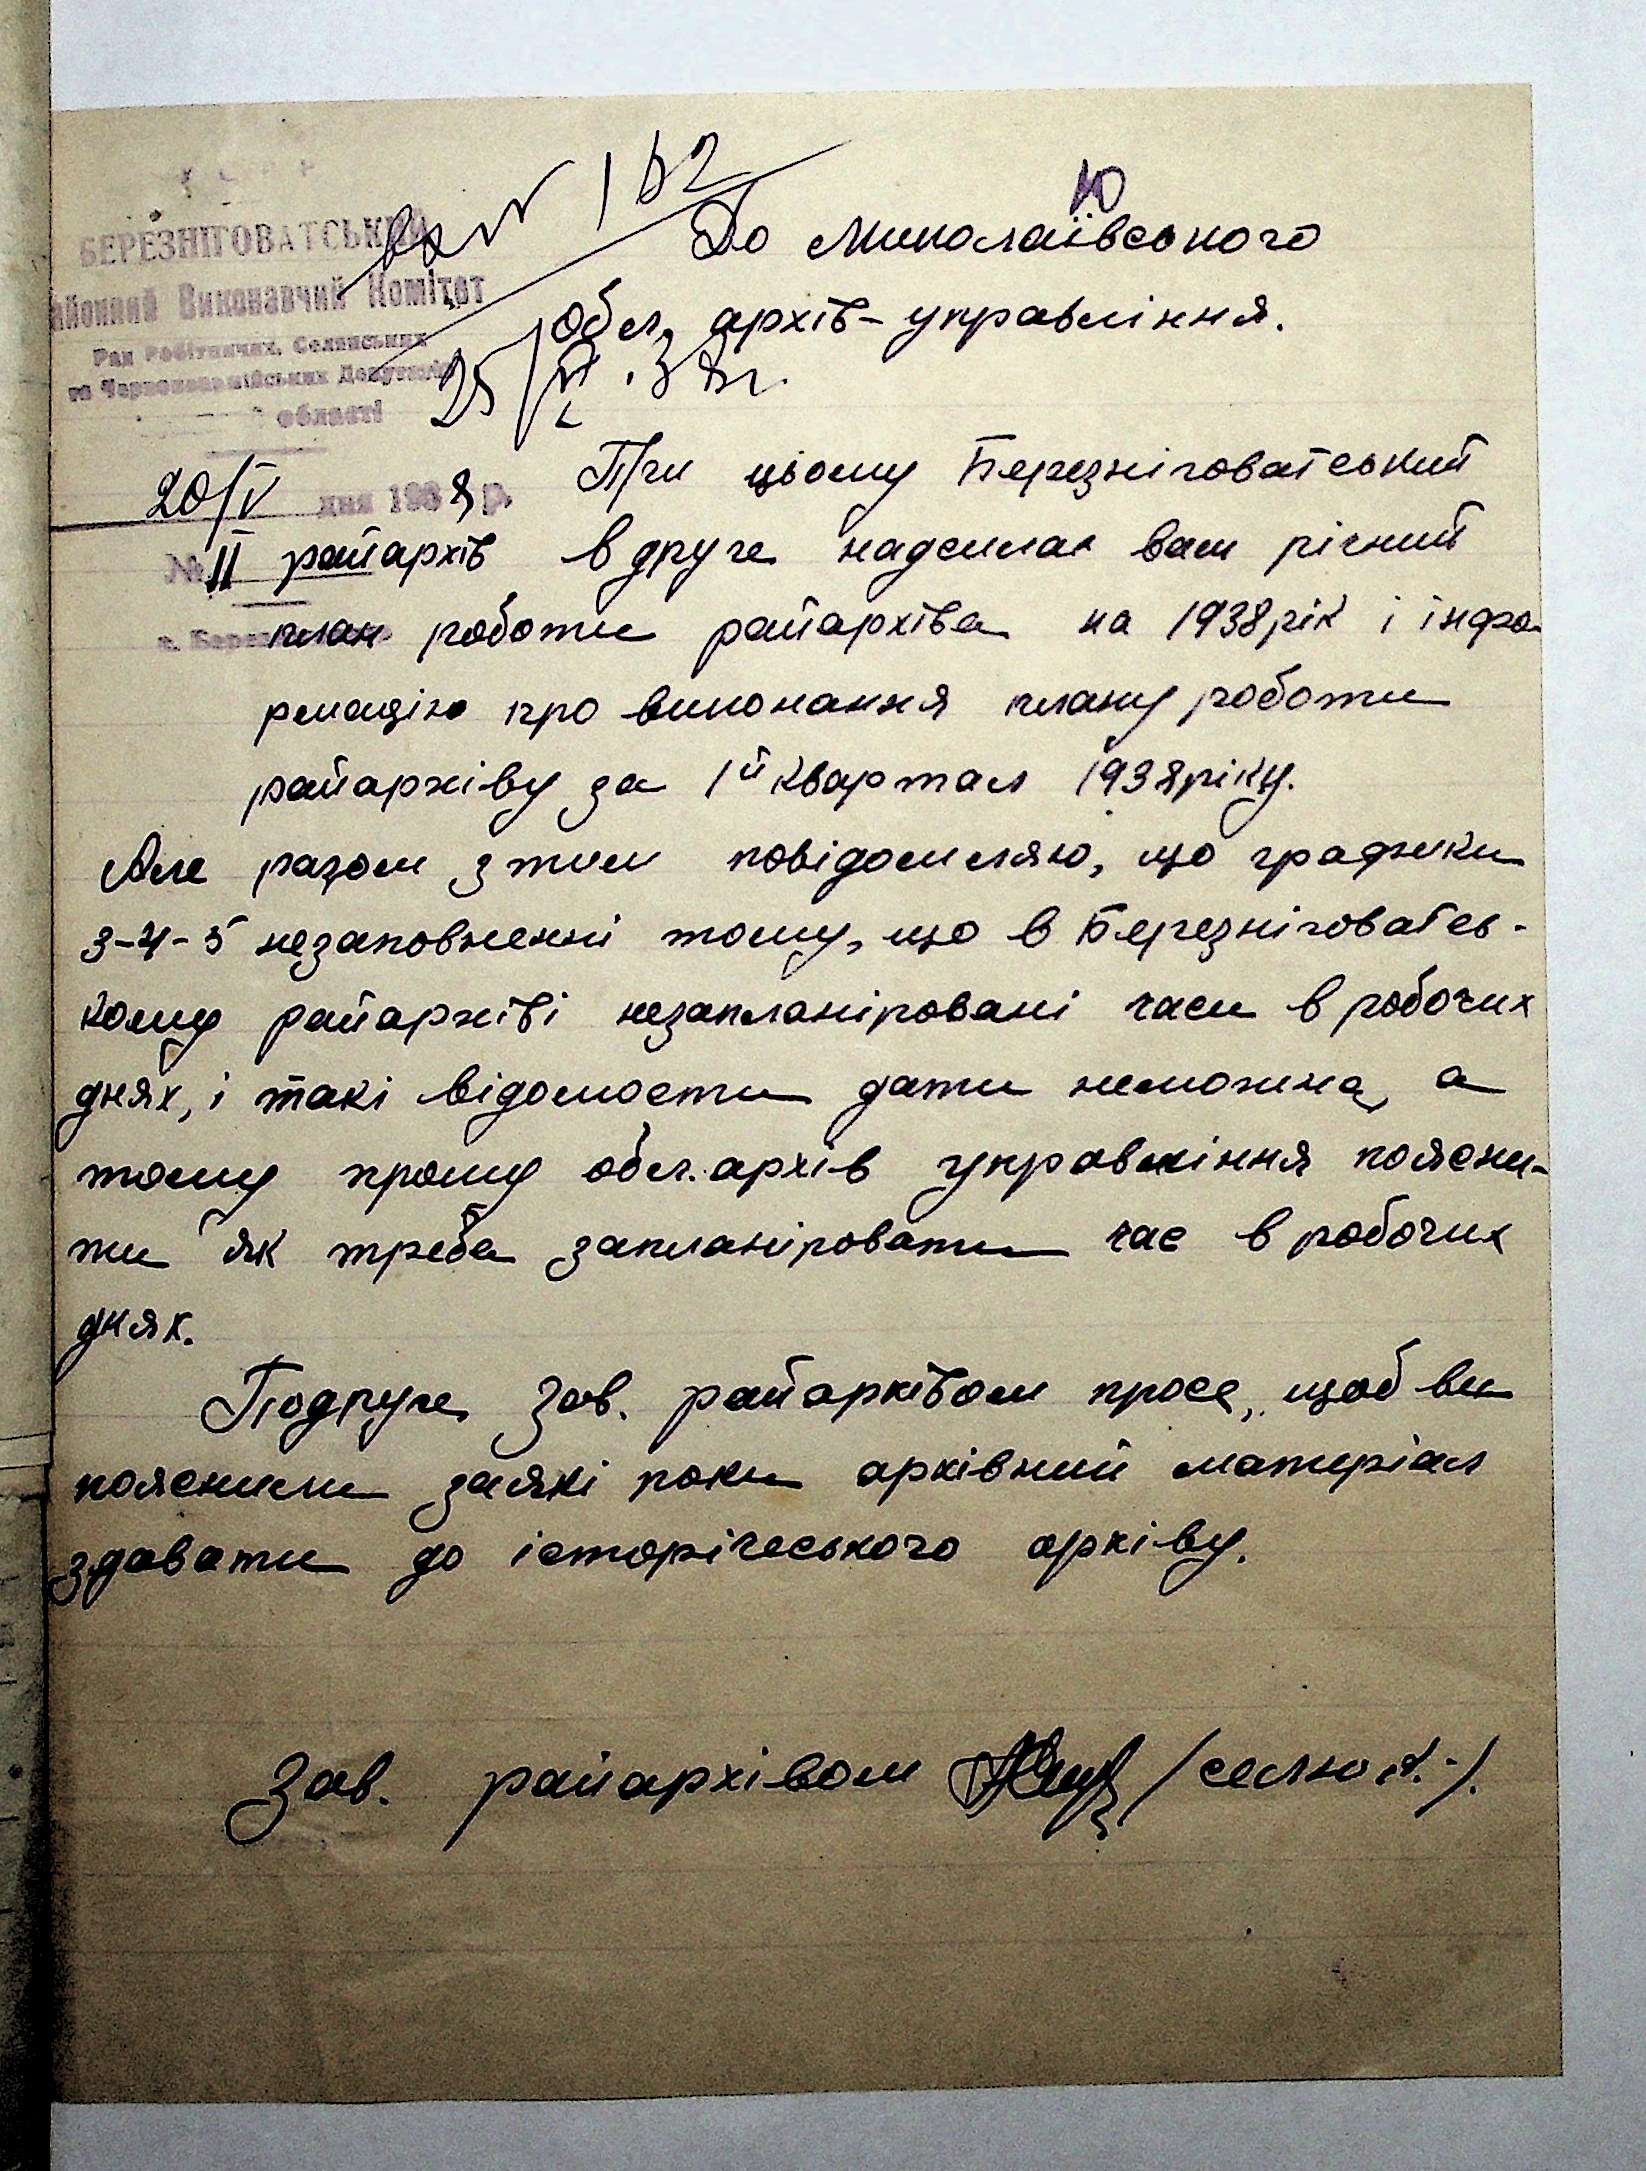 вх № 162
10
До Миколаївського
Обл. архів-управління.
25/VI.38г.
БЕРЕЗНІГОВАТСЬКИЙ
айонний Виконавчий Комітет
Рад Робітничих, Селянських
та Червоноармійських Депутатів
області
20/V дня 1938 р.
№ 11
При цьому Березніговатський
райархів вдруге надсилає вам річний
план роботи райархіва на 1938 рік і інфо-
рмацію про виконання плану роботи
райархіву за 1й квартал 1938 ріку.
Але разом з тим повідомляю, що графики
3-4-5 незаповненні тому, що в Березніговатсь-
кому райархіві незапланіровані часи в робочих
днях, і такі відомости дати неможна, а
тому прошу обл. архів управління поясни-
ти як треба запланіровати час в робочих
днях.
Подруге, зав. райархівом просе, щоб ви
пояснили заякі роки архівний матеріал
здавати до історічеського архіву.
Зав. райархівом